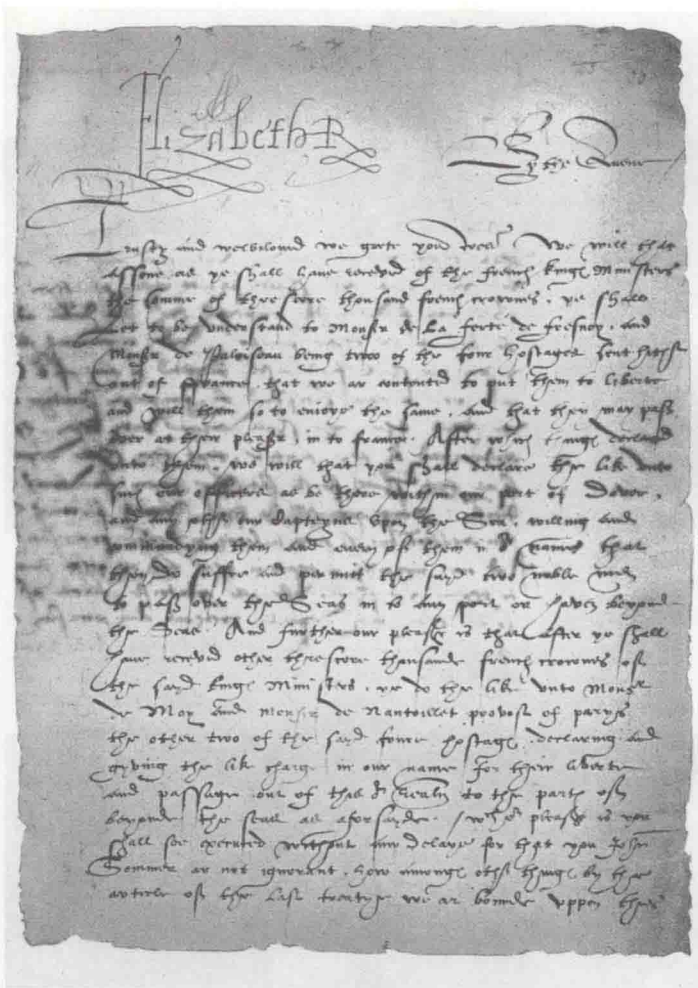 Elizabeth R
By the Quene
Trusty and welbiloved we grete you well We will that
assone as ye shall have receved of the french kings Ministers
the somme of three score thousand french crownes, ye shall
let to be understand to Monsr de La ferte de fresnoy, and
Monsr de Paloiseau being two of the four hostages sent hither
out of France, that we ar contentid to put them to liberte
and will them so to enioye the same, and that they may pass
over at their pleasr, in to france. After which things declared
unto them, we will that you shall declare the like unto
such our officers as be there within our port of Dover,
and any other our Capteyns upon the Sea, willing and
commanding them and every of them in names that
they do suffre and permitt the sayd two noble men
to pass over the Seas in to any port or haven beyond
the Seas And further our pleasr is that after ye shall
have receved other threscore thousande french crownes of
the sayd kings Ministers, ye do the like unto Monsr
de Moy and Monsr de Nantoillet provost of parys
the other two of the sayd foure hostags, declaring and
gyving the like charge in our name for their liberte
and passage out of this realm to the parts of
beyonde the seas as aforsayde. pleasr is you
shall see executed without any delaye for that you John
Sommer ar not ignorant, how amongs other things by the
article of the last treatye we ar bounde uppon the